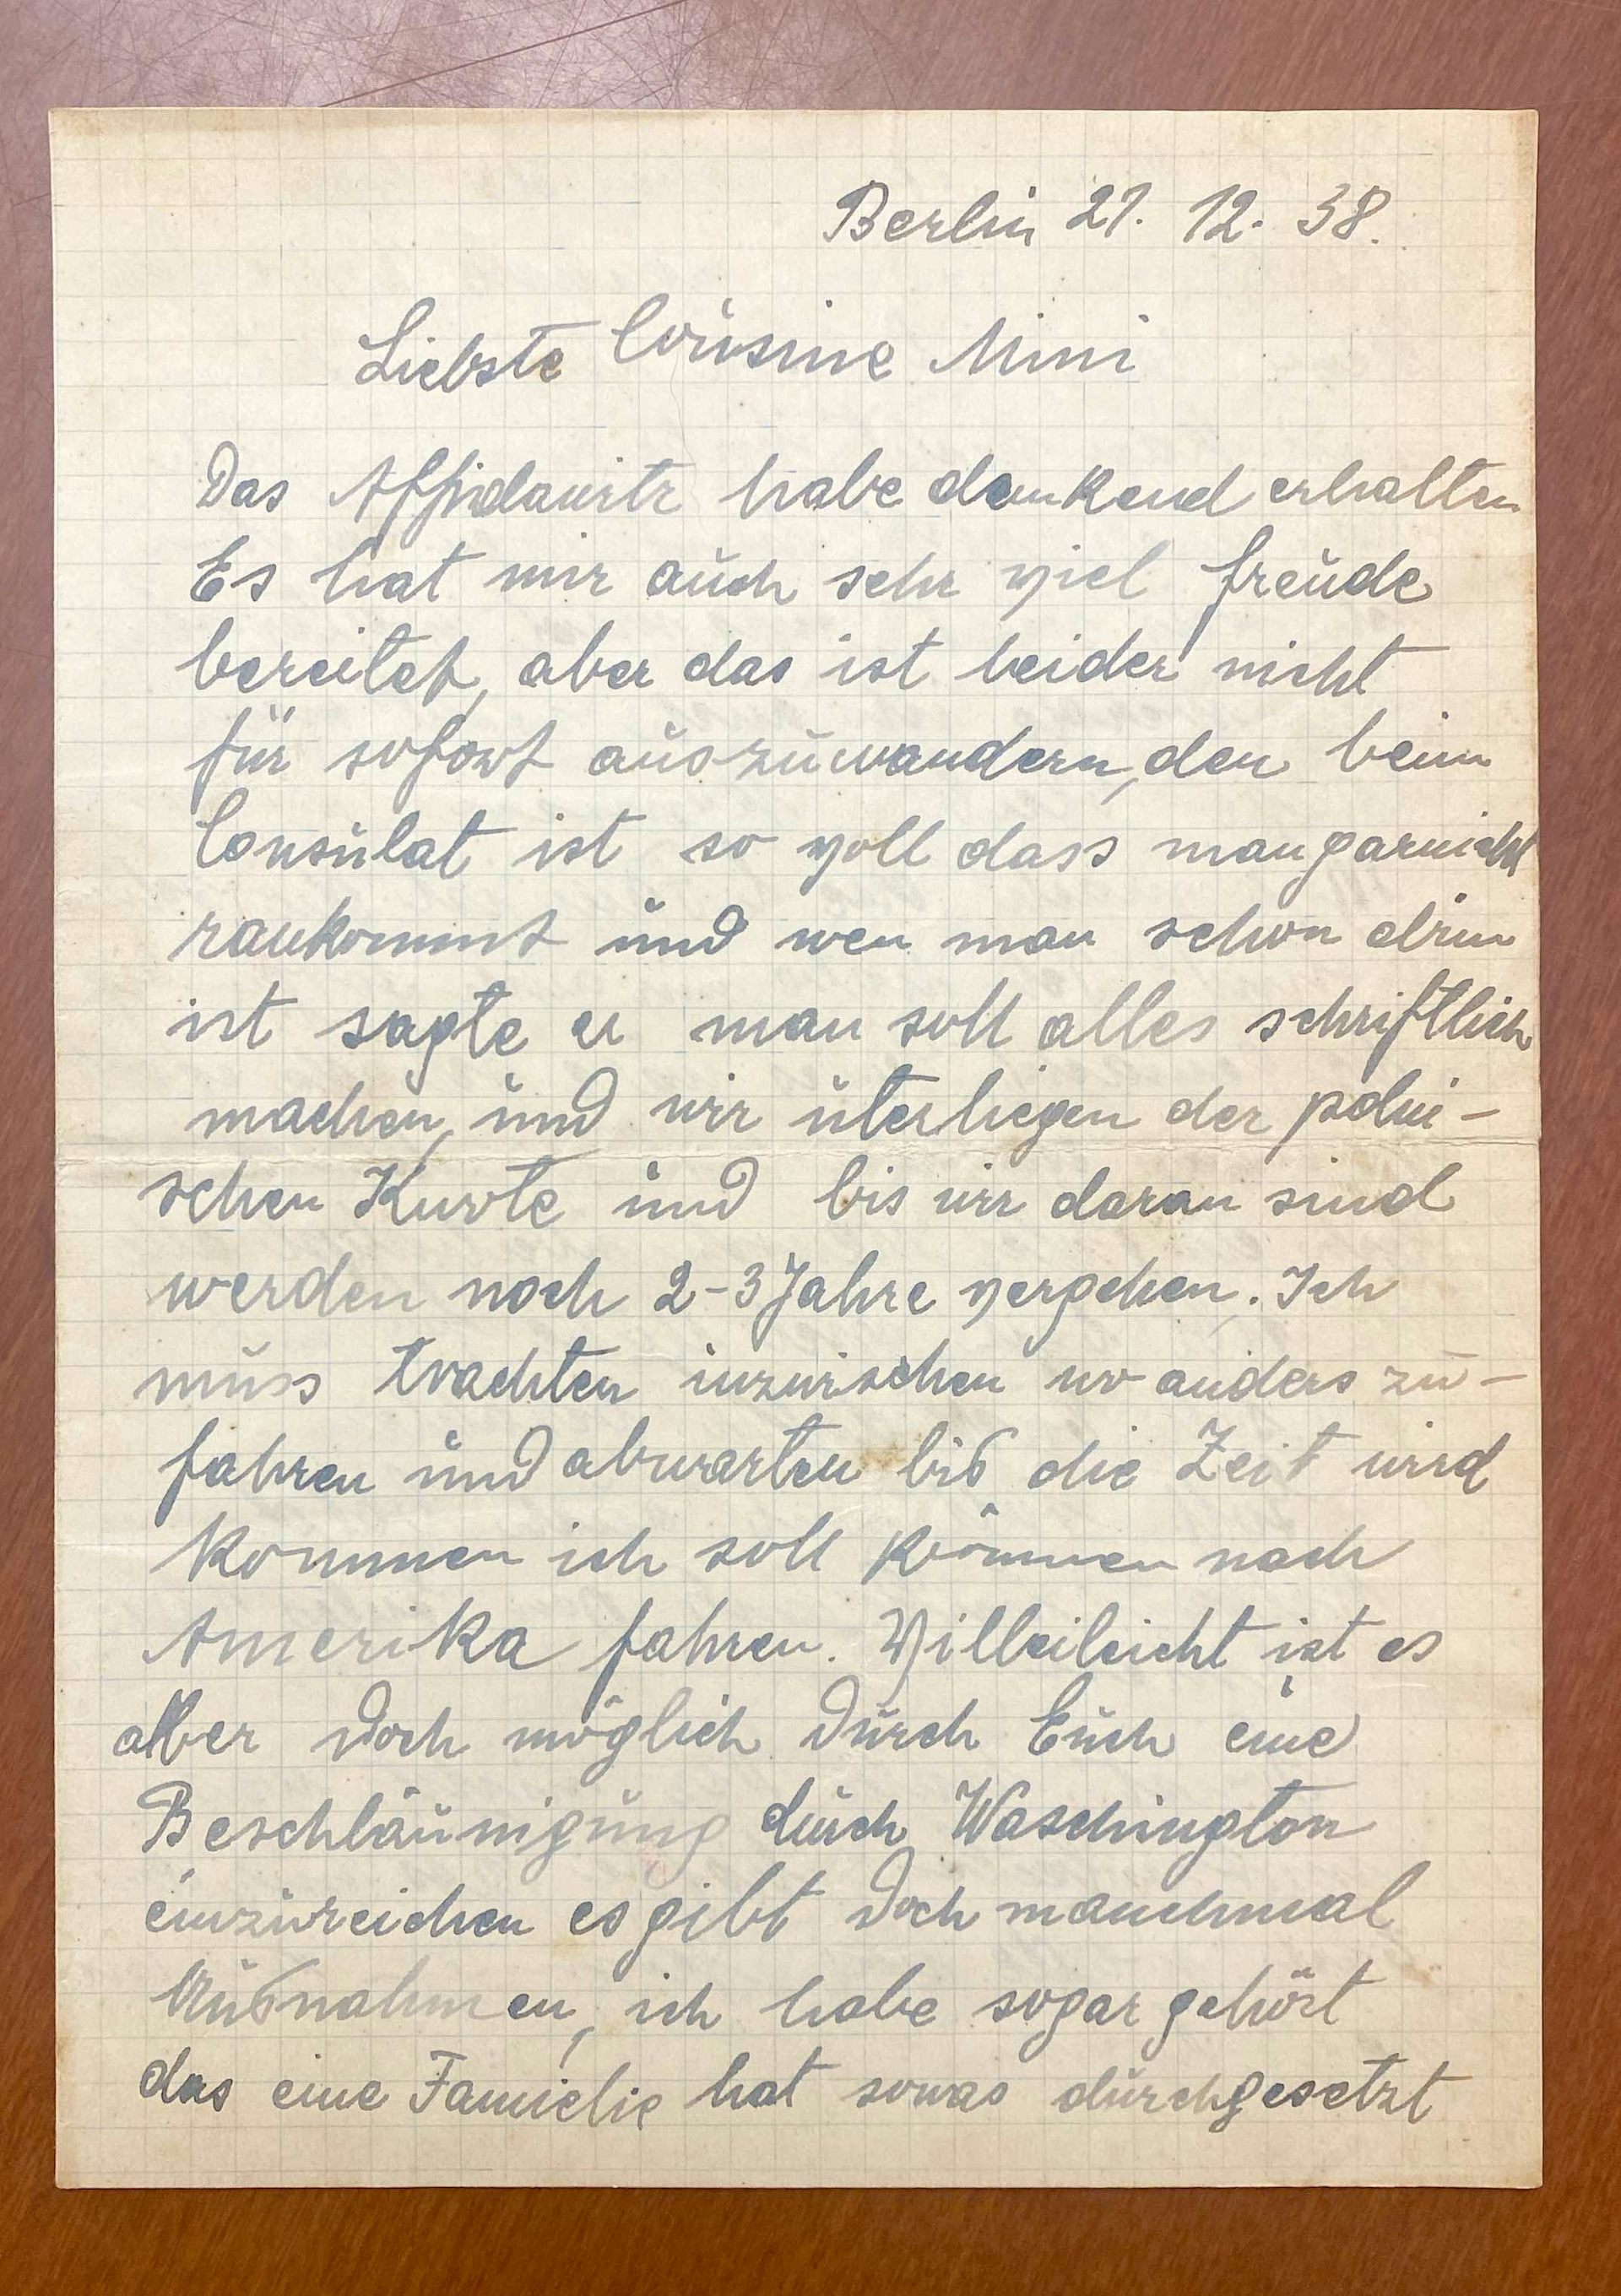 Berlin 21. 12. 38.
Liebste Cousine Mini
Das Affidawitr habe dankend erhalten
Es hat mir auch sehr viel freude
bereitet, aber das ist leider nicht
für sofort auszuwandern, den beim
Consulat ist so voll dass man garnicht
rankommt und wen man schon drin
ist sagte er man soll alles schriftlich
machen, und wir üterliegen der polni-
schen Kwote und bis wir daran sind
werden noch 2-3 Jahre vergehen. Ich
muss trachten inzwischen wo anders zu-
fahren und abwarten bis die Zeit wird
kommen ich soll können nach
Amerika fahren. Villeileicht ist es
aber doch möglich durch Euch eine
Beschläunigung durch Waschington
einzureichen es gibt doch manchmal
Außnahmen, ich habe sogar gehört
das eine Famielie hat sowas durchgesetzt